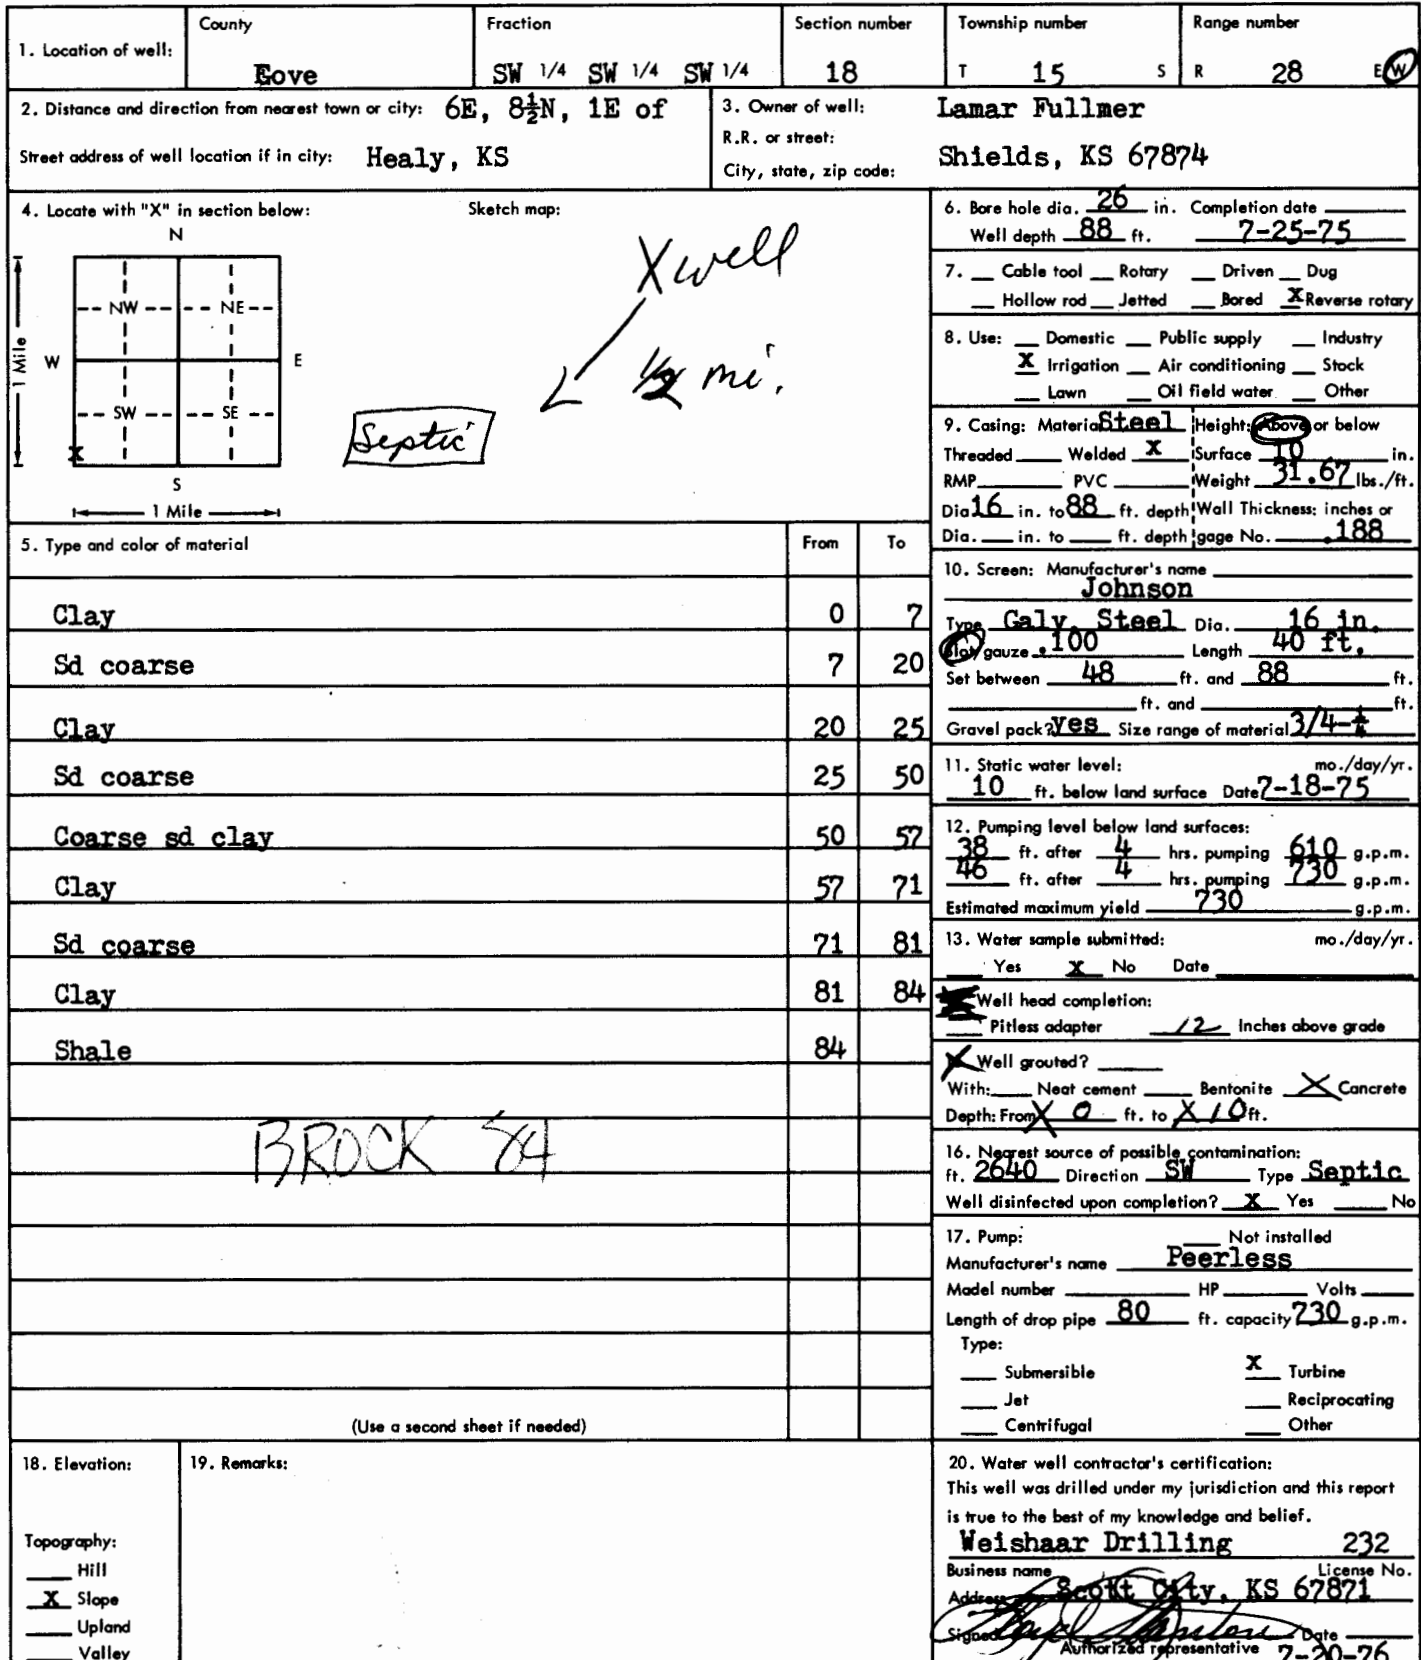 1. Location of well: County Gove Fraction SW 1/4 SW 1/4 SW 1/4 Section number 18 Township number T 15 S Range number R 28 E W
2. Distance and direction from nearest town or city: 6E, 8½N, 1E of
Street address of well location if in city: Healy, KS
3. Owner of well: Lamar Fullmer
R.R. or street:
City, state, zip code: Shields, KS 67874
4. Locate with "X" in section below:
N
NW NE
W E
SW SE
X
S
1 Mile
1 Mile
Sketch map:
X well
1/2 mi.
Septic
5. Type and color of material From To
Clay 0 7
Sd coarse 7 20
Clay 20 25
Sd coarse 25 50
Coarse sd clay 50 57
Clay 57 71
Sd coarse 71 81
Clay 81 84
Shale 84
BROCK 84
(Use a second sheet if needed)
6. Bore hole dia. 26 in. Completion date
Well depth 88 ft. 7-25-75
7. Cable tool Rotary Driven Dug
Hollow rod Jetted Bored X Reverse rotary
8. Use: Domestic Public supply Industry
X Irrigation Air conditioning Stock
Lawn Oil field water Other
9. Casing: Material Steel Height: Above or below
Threaded Welded X Surface 10 in.
RMP PVC Weight 31.67 lbs./ft.
Dia 16 in. to 88 ft. depth Wall Thickness: inches or
Dia. in. to ft. depth gage No. .188
10. Screen: Manufacturer's name
Johnson
Type Galv. Steel Dia. 16 in.
Slot/gauze .100 Length 40 ft.
Set between 48 ft. and 88 ft.
ft. and ft.
Gravel pack? yes Size range of material 3/4-
11. Static water level: mo./day/yr.
10 ft. below land surface Date 7-18-75
12. Pumping level below land surfaces:
38 ft. after 4 hrs. pumping 610 g.p.m.
46 ft. after 4 hrs. pumping 730 g.p.m.
Estimated maximum yield 730 g.p.m.
13. Water sample submitted: mo./day/yr.
Yes X No Date
Well head completion:
Pitless adapter 12 Inches above grade
Well grouted?
With: Neat cement Bentonite X Concrete
Depth: From X 0 ft. to X 10 ft.
16. Nearest source of possible contamination:
ft. 2640 Direction SW Type Septic
Well disinfected upon completion? X Yes No
17. Pump: Not installed
Manufacturer's name Peerless
Model number HP Volts
Length of drop pipe 80 ft. capacity 730 g.p.m.
Type:
Submersible X Turbine
Jet Reciprocating
Centrifugal Other
18. Elevation:
Topography:
Hill
X Slope
Upland
Valley
19. Remarks:
20. Water well contractor's certification:
This well was drilled under my jurisdiction and this report
is true to the best of my knowledge and belief.
Weishaar Drilling 232
Business name License No.
Address Scott City, KS 67871
Signed Date
Authorized representative 7-20-76